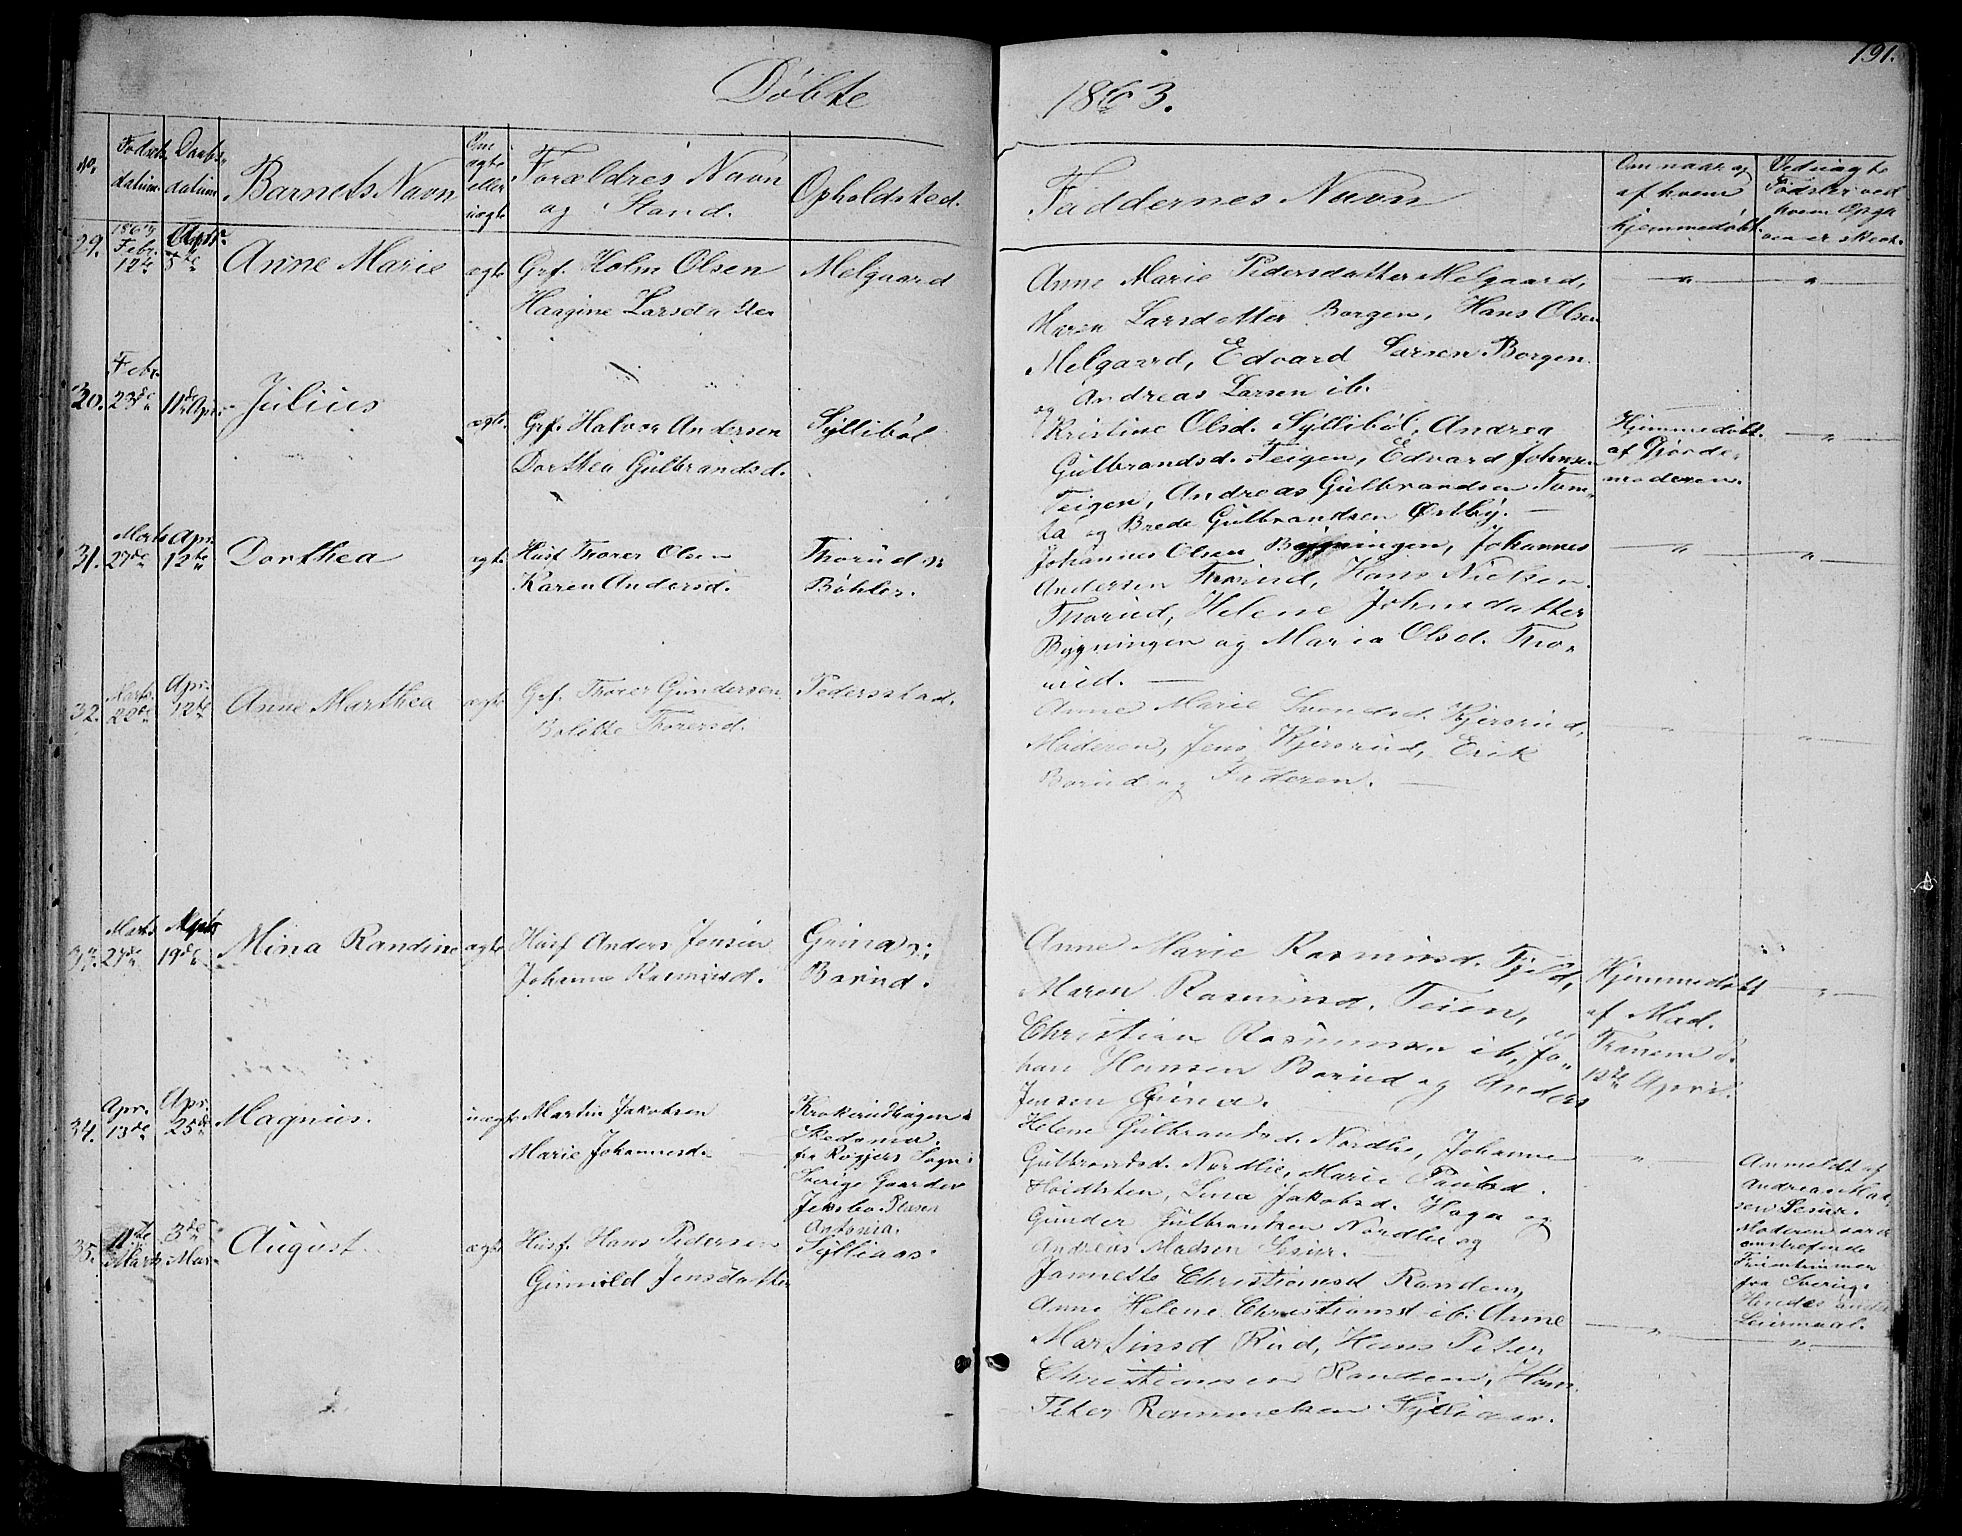 Döbte
1863.
191.
No.
Fødsels datum.
Daabs datum
Barnets Navn
Om ægte eller uægte
Forældres Navn og Stand.
Opholdsted.
Faddernes Navn
Om naar og af hvem hjemmedøbt.
Ved uægte Fødsler ved hvem Opgaven er skeet.
29.
1863 Febr. 12te
Apr. 5te
Anne Marie
ægte
Grf. Holm Olsen
Haagine Larsdatter
Melgaard
Anne Marie Pedersdatter Melgaard,
Maren Larsdatter Borgen, Hans Olsen
Melgaard, Edvard Larsen Borgen
og Andreas Larsen ib.
"
"
30.
Febr. 23de
11de Apr.
Julius
ægte.
Grf. Halvor Andersen
Dorthea Gulbrandsd.
Syllibøl
Kristine Olsd. Syllibøl, Andrea
Gulbrandsd. Teigen, Edvard Johnsen
Teigen, Andreas Gulbrandsen Tom-
ta og Brede Gulbrandsen Østby. —
Hjemmedøbt.
af Gjorde-
moderen.
"
31.
Marts 27de
Apr. 12te
Dorthea
ægte.
Husf. Thorer Olsen
Karen Andersd.
Thorud v:
Böhler.
Johannes Olsen Bygningen, Johannes
Andersen Thorud, Hans Nielsen
Thorud, Helene Johnsdatter
Bygningen og Maria Olsd. Tho-
rud. —
"
"
32.
Marts 22de
Apr. 12te
Anne Marthea
ægte
Grf. Thorer Gundersen
Bolette Thorersd.
Pedersstad.
Anne Marie Svendsd. Kjersrud,
Moderen, Jens Kjersrud, Erik
Borud og Faderen. —
"
"
33.
Marts 27de
19de
Mina Randine
ægte
Husf Anders Jensen
Johanne Rasmusd.
Grina v:
Borud.
Anne Marie Rasmusd. Fjeld,
Maren Rasmusd. Teien,
Christian Rasmussen ib, Jo-
han Hansen Borud og Anders
Jensen Grina.
Hjemmedøbt
af Mad.
12te April.
"
34.
Apr. 13de
Apr. 25de
Magnus.
uægte
Martin Jakobsen
Marie Johannesd.
Skedsmo.
fra Sogn i
Sverige Gaarden
Helene Gulbrandsd. Nordlie, Johanne
Gulbrandsd. Nordlie, Marie Paulsd.
Hvidtsten, Lina Jakobsd. Haga og
Gunder Gulbrandsen Nordlie og
Andreas Madsen Lesiur. —
"
Anmeldt af
Andreas Mad-
sen Lesiur.
Moderen var et
omstreifende
Fruentimmer
fra Sverige
Hendes andet
Leiermaal.
35.
11te Marts
3de Mai
August
ægte
Husf. Hans Pedersen
Gunild Jensdatter
Sylliaas.
Jannette Christiansd Randen,
Anne Helene Christiansd ib. Anne
Martinsd Rud, Hans Peter
Christiansen Randen, Hans
Peter Rasmussen Sylliaas.
"
"